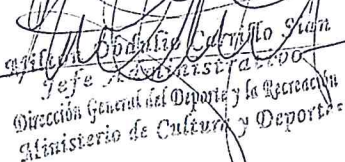 Wilson Obdulio Carrillo Sian
Jefe Administrativo
Dirección General del Deporte y la Recreación
Ministerio de Cultura y Deportes